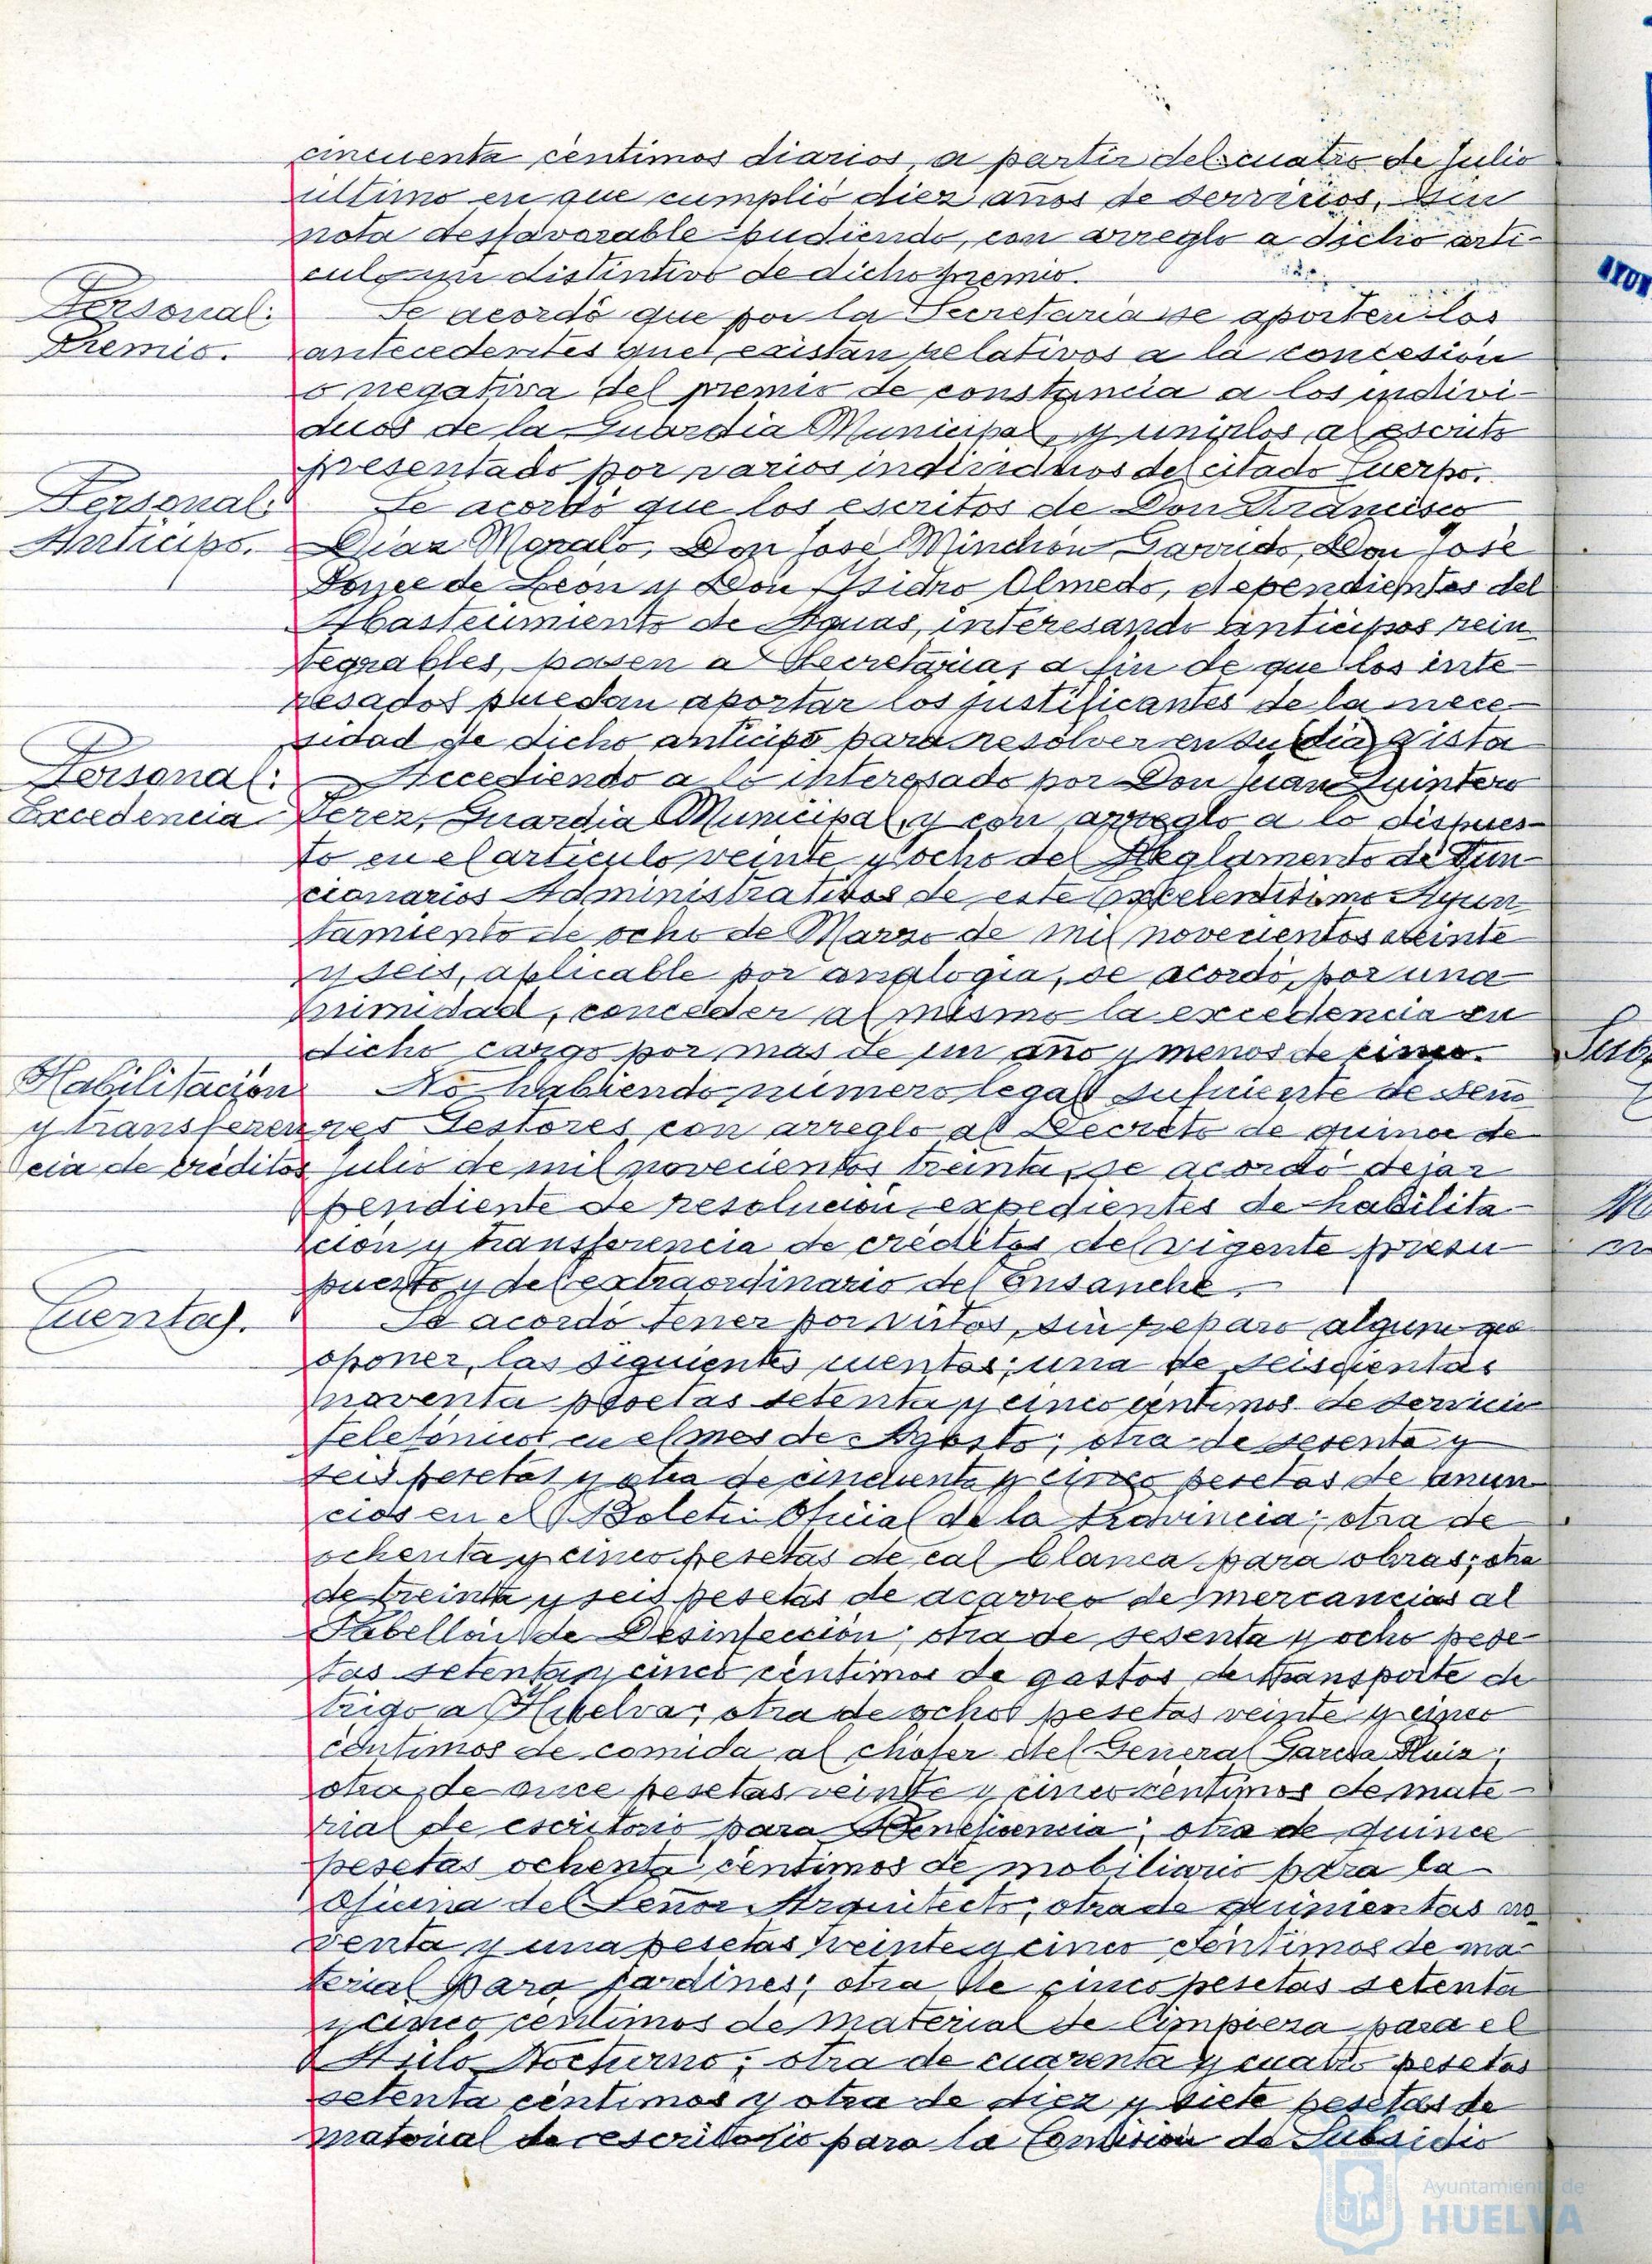 cincuenta céntimos diarios, a partir del cuatro de Julio
último en que cumplió diez años de servicios, sin
nota desfavorable pudiendo, con arreglo a dicho arti-
culo un distintivo de dicho premio.
Personal:
Premio.
Se acordó que por la Secretaría se aporten los
antecedentes que existan relativos a la concesión
o negativa del premio de constancia a los indivi-
duos de la Guardia Municipal, y unirlos al escrito
presentado por varios individuos del citado Cuerpo.
Personal:
Anticipo.
Se acordó que los escritos de Don Francisco
Díaz Moralo, Don José Minchón Garrido, Don José
Ponce de León y Don Isidro Olmedo, dependientes del
Abastecimiento de Aguas, interesando anticipos rein
tegrables, pasen a Secretaría, a fin de que los inte-
resados puedan aportar los justificantes de la nece-
sidad de dicho anticipo para resolver en su vista
Personal:
Excedencia
Accediendo a lo interesado por Don Juan Quintero
Perez, Guardia Municipal, y con arreglo a lo dispues-
to en el artículo veinte y ocho del Reglamento de Fun-
cionarios Administrativos de este Excelentísimo Ayun
tamiento de ocho de Marzo de mil novecientos veinte
y seis, aplicable por analogía, se acordó, por una-
nimidad, conceder al mismo la excedencia en
dicho cargo por mas de un año y menos de cinco.
Habilitación
y transferen
cia de créditos
No habiendo número legal suficiente de seño
res Gestores con arreglo al Decreto de quince de
Julio de mil novecientos treinta, se acordó dejar
pendiente de resolución expedientes de habilita-
ción y transferencia de créditos del vigente presu-
puesto y del extraordinario del Ensanche.
Cuentas.
Se acordó tener por vistas, sin reparo alguno que
oponer, las siguientes cuentas; una de seiscientas
noventa pesetas setenta y cinco céntimos de servicio
telefónico en el mes de Agosto; otra de sesenta y
seis pesetas y otra de cincuenta y cinco pesetas de anun
cios en el Boletín Oficial de la Provincia; otra de
ochenta y cinco pesetas de cal blanca para obras; otra
de treinta y seis pesetas de acarreo de mercancías al
Pabellón de Desinfección; otra de sesenta y ocho pese-
tas setenta y cinco céntimos de gastos de transporte de
trigo a Huelva; otra de ochos pesetas veinte y cinco
céntimos de comida al chófer del General García Ruiz;
otra de once pesetas veinte y cinco céntimos de mate-
rial de escritorio para Beneficencia; otra de quince
pesetas ochenta céntimos de mobiliario para la
oficina del Señor Arquitecto; otra de quinientas no-
venta y una pesetas veinte y cinco céntimos de ma-
terial para jardines; otra de cinco pesetas setenta
y cinco céntimos de material de limpieza para el
Asilo Nocturno; otra de cuarenta y cuatro pesetas
setenta céntimos y otra de diez y siete pesetas de
material de escritorio para la Comisión de Subsidio
Ayuntamiento de
HUELVA